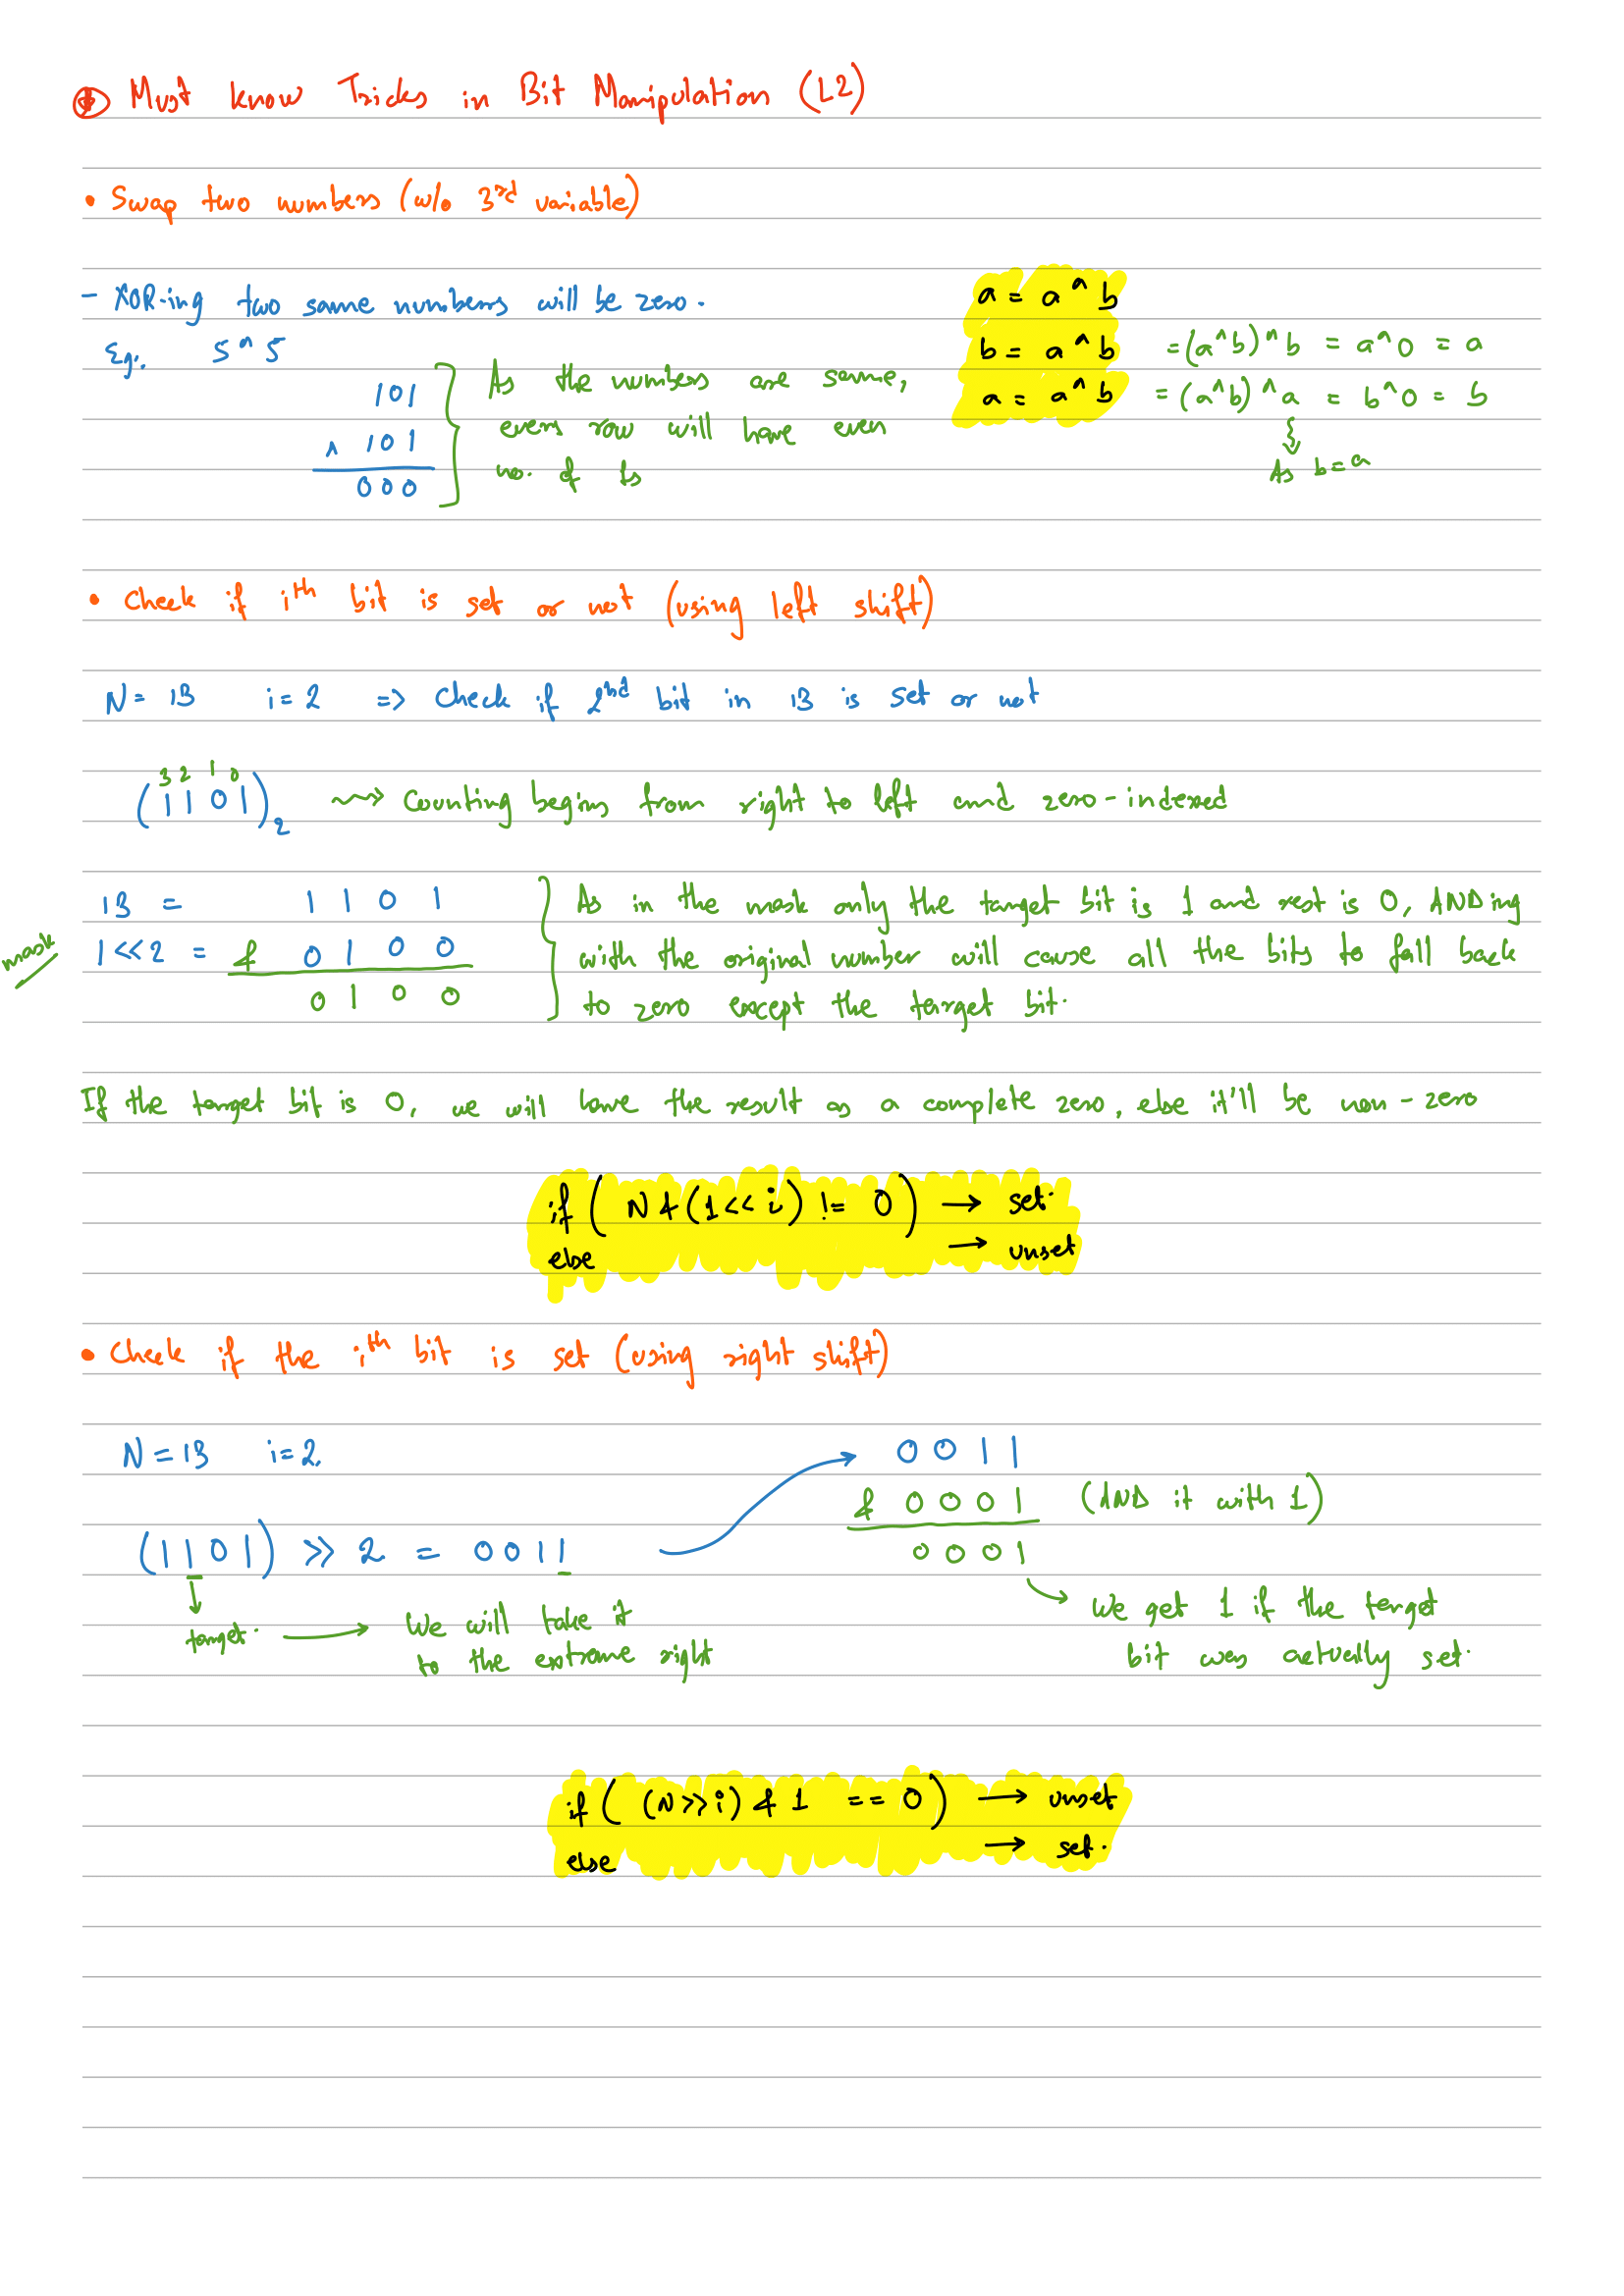 Must know Tricks in Bit Manipulation (L2)
• Swap two numbers (w/o 3rd variable)
- XOR-ing two same numbers will be zero.
Eg:. 5 ^ 5
101
^ 101
000
As the numbers are same,
every row will have even
no. of 1s
a = a ^ b
b = a ^ b = (a^b)^b = a^0 = a
a = a ^ b = (a^b)^a = b^0 = b
As b=a
• Check if ith bit is set or not (using left shift)
N = 13 i = 2 => Check if 2nd bit in 13 is set or not
3 2 1 0
(1 1 0 1)2 ⇝ Counting begins from right to left and zero-indexed
13 = 1 1 0 1
mask 1<<2 = & 0 1 0 0
0 1 0 0
As in the mask only the target bit is 1 and rest is 0, ANDing
with the original number will cause all the bits to fall back
to zero except the target bit.
If the target bit is 0, we will have the result as a complete zero, else it'll be non-zero
if ( N & (1<<i) != 0 ) → set.
else → unset
• Check if the ith bit is set (using right shift)
N = 13 i = 2.
(1101) >> 2 = 0011
target. → We will take it
to the extreme right
0 0 1 1
& 0 0 0 1 (AND it with 1)
0 0 0 1
We get 1 if the target
bit was actually set.
if ( (N>>i) & 1 == 0 ) → unset
else → set.